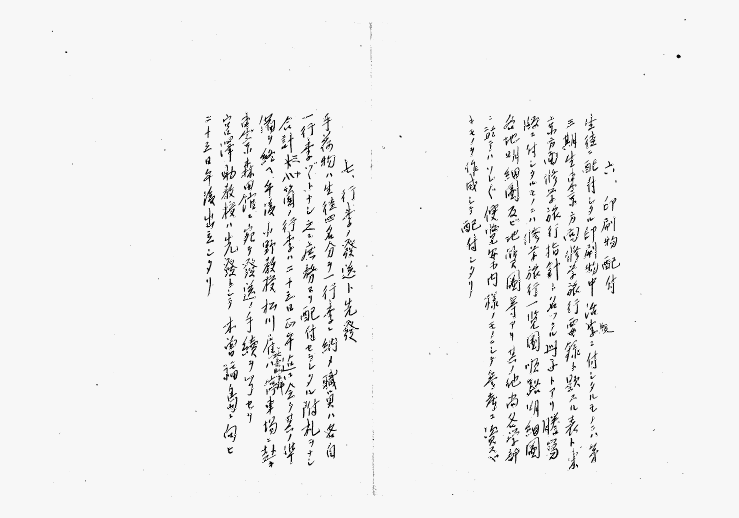 六、印刷物配付
生徒ニ配付シタル印刷物中活版ニ付シタルモノニハ第
三期生東京方面修学旅行要録ト題スル表ト東
京方面修学旅行指針ト名ヅクル冊子トアリ謄写
版ニ付シタルモノニハ修学旅行一覧図順路明細図
各地明細図及ビ地質図等アリ其ノ他尚各学部
ニ於テハソレゾレ便覧案内様ノモノシテ参考ニ資スベ
キモノヲ作成シテ配付シタリ
七、行李ノ発送ト先発
手荷物ハ生徒四名分ヲ一行李ニ納メ職員ハ各自
一行李ヅツトナシ之ニ庶務ヨリ配付セラレタル附札ヲナシ
合計三十八箇ノ行李ハ二十三日正午迄ニ全ク其ノ準
備ヲ終ヘ午後小野教授松川雇ハ停車場ニ赴キ
東京森田館ニ宛テ発送ノ手続ヲ了セリ
宮澤助教授ハ先発トシテ木曽福島ニ向ヒ
二十三日午後出立シタリ